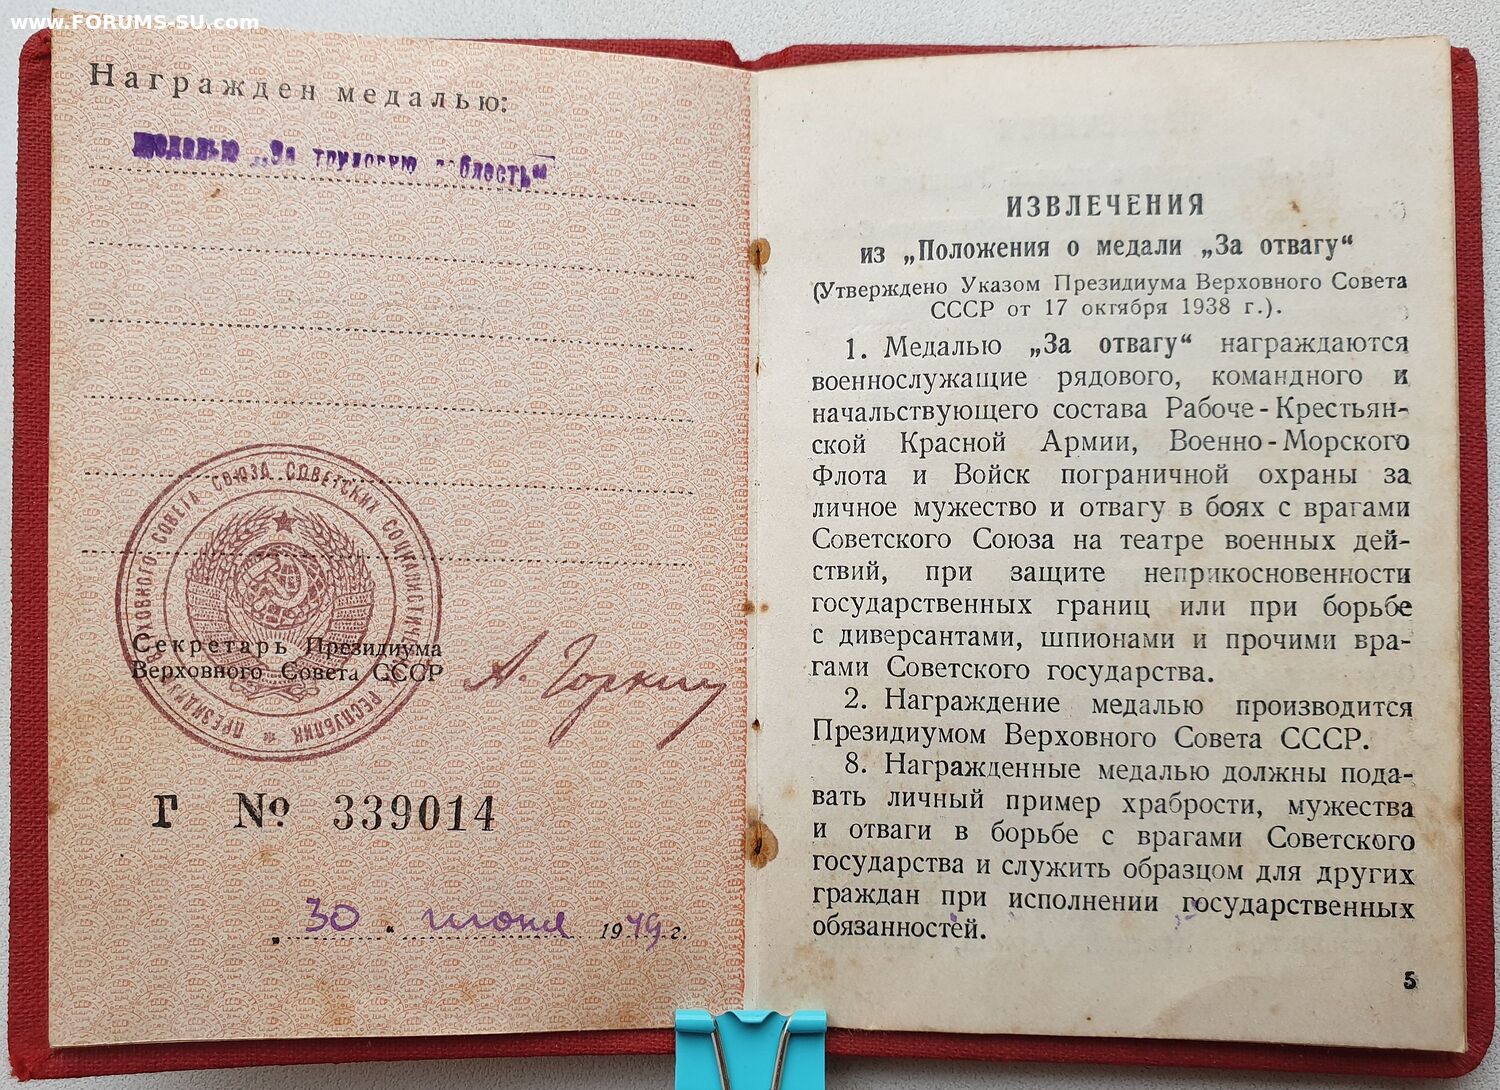 www.FORUMS-SU.com
Награжден медалью:
медалью „За трудовую доблесть“
ПРЕЗИДИУМ ВЕРХОВНОГО СОВЕТА СОЮЗА СОВЕТСКИХ СОЦИАЛИСТИЧЕСКИХ РЕСПУБЛИК
Секретарь Президиума
Верховного Совета СССР
А. Горкин
Г № 339014
„ 30 “ июня 1949 г.
ИЗВЛЕЧЕНИЯ
из „Положения о медали „За отвагу“
(Утверждено Указом Президиума Верховного Совета
СССР от 17 октября 1938 г.).
1. Медалью „За отвагу“ награждаются
военнослужащие рядового, командного и
начальствующего состава Рабоче-Крестьян-
ской Красной Армии, Военно-Морского
Флота и Войск пограничной охраны за
личное мужество и отвагу в боях с врагами
Советского Союза на театре военных дей-
ствий, при защите неприкосновенности
государственных границ или при борьбе
с диверсантами, шпионами и прочими вра-
гами Советского государства.
2. Награждение медалью производится
Президиумом Верховного Совета СССР.
8. Награжденные медалью должны пода-
вать личный пример храбрости, мужества
и отваги в борьбе с врагами Советского
государства и служить образцом для других
граждан при исполнении государственных
обязанностей.
5